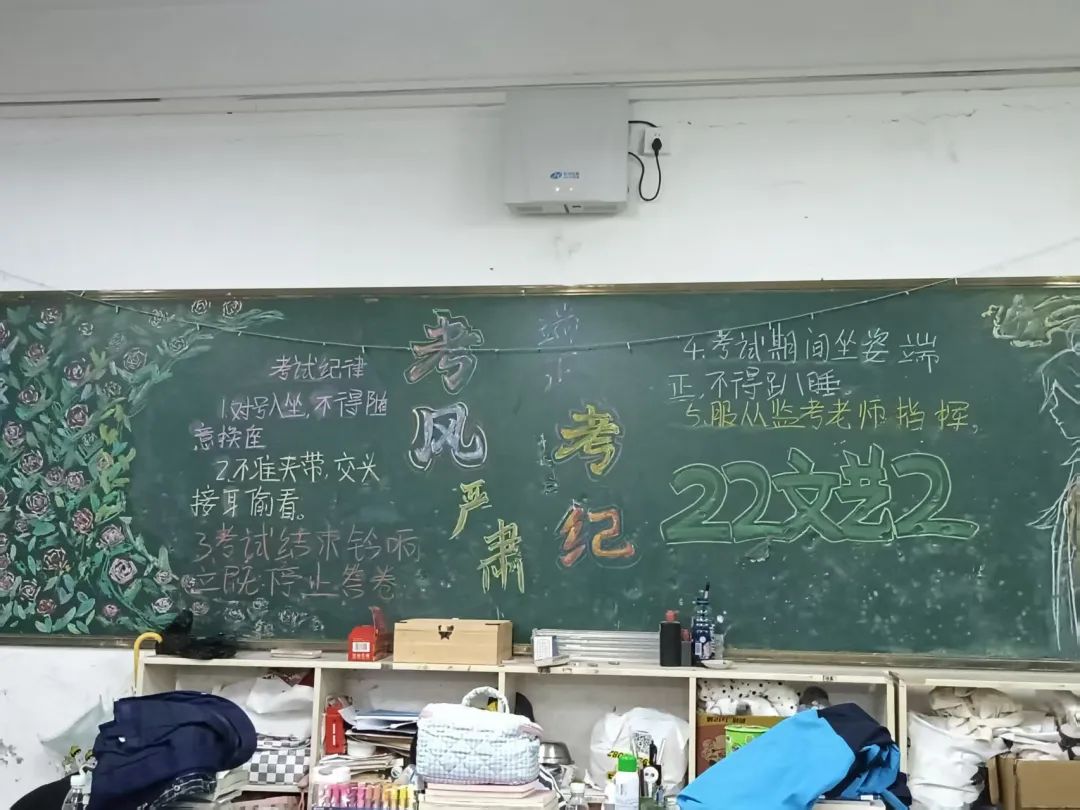 考试纪律
1.对号入坐,不得随
意换座
2.不准夹带,交头
接耳偷看。
3考试结束铃响
立既停止答卷
考
风
严
肃
端
正
考
纪
4.考试期间坐姿端
正,不得趴睡。
5.服从监考老师指挥,
22文艺2